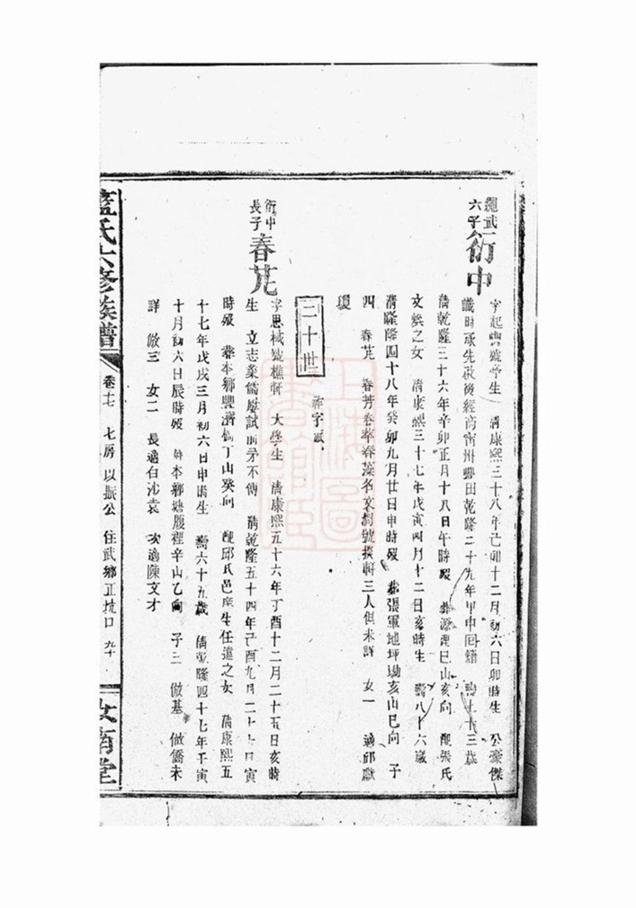 繩武
六子
衍中
字起 號 學生 清康熙三十八年己卯十二月初六日卯時生 公豪傑
識時承先啟後經商 州 田乾隆二十九年甲申回籍 壽七十三歲
清乾隆三十六年辛卯正月十八日午時歿 葬 巳山亥向 配張氏
文 之女 清康熙三十七年戊寅四月十二日亥時生 壽八十六歲
清乾隆四十八年癸卯九月廿日申時歿 葬張軍地坪坳亥山巳向 子
四 春芃 春芳 春 春藻名 號 軒三人俱未詳 女一 適邱獻
二十世 祚字派
衍中
長子
春芃
字思棫號樵軒 大學生 清康熙五十六年丁酉十二月二十五日亥時
生 立志業儒屢試前茅不售 清乾隆五十四年己酉九月二十七日寅
時歿 葬本鄉興 丁山癸向 配邱氏邑庠生任道之女 清康熙五
十七年戊戌三月初六日申時生 壽六十五歲 清乾隆四十七年壬寅
十月初六日辰時歿 葬本鄉塘 裡辛山乙向 子三 倣基 倣僑未
詳 倣三 女二 長適白沙袁 次適陳文才
藍氏六修族譜 卷十七 七房 以振公 住武鄉正坑口 汝南堂